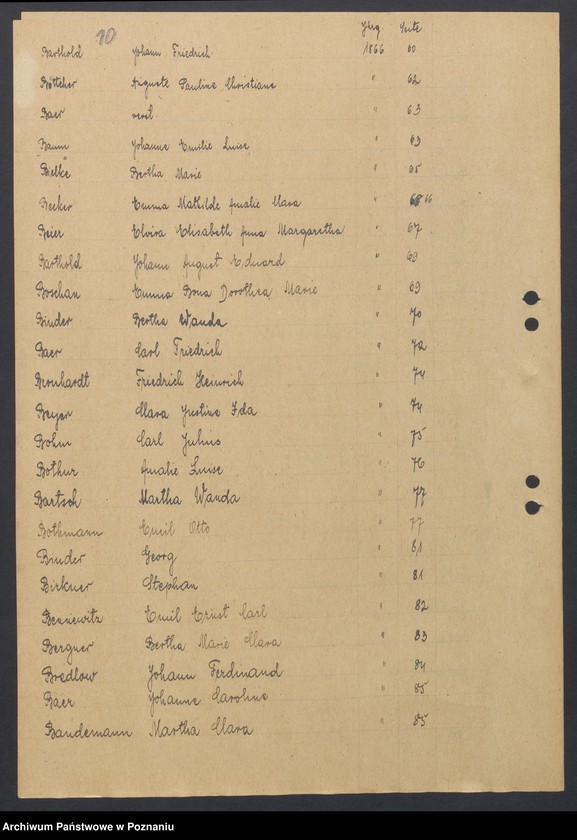 10
Jhrg. Seite
Barthold Johann Friedrich 1866 60
Böttcher Auguste Pauline Christiane " 62
Baer verst. " 63
Baum Johanne Emilie Luise " 63
Bielke Bertha Marie " 65
Becker Emma Mathilde Amalie Clara " 66
Beier Elvira Elisabeth Anna Margaretha " 67
Barthold Johann August Eduard " 69
Boschan Emma Bona Dorothea Marie " 69
Binder Bertha Wanda " 70
Baer Carl Friedrich " 72
Bernhardt Friedrich Heinrich " 74
Beyer Clara Justine Ida " 74
Böhm Carl Julius " 75
Bothur Amalie Luise " 76
Bartsch Martha Wanda " 77
Bothmann Emil Otto " 77
Binder Georg " 81
Birkner Stephan " 81
Bennewitz Emil Ernst Carl " 82
Bergner Bertha Marie Clara " 83
Bredlow Johann Ferdinand " 84
Baer Johanne Caroline " 85
Bandemann Martha Clara " 85
Archiwum Państwowe w Poznaniu